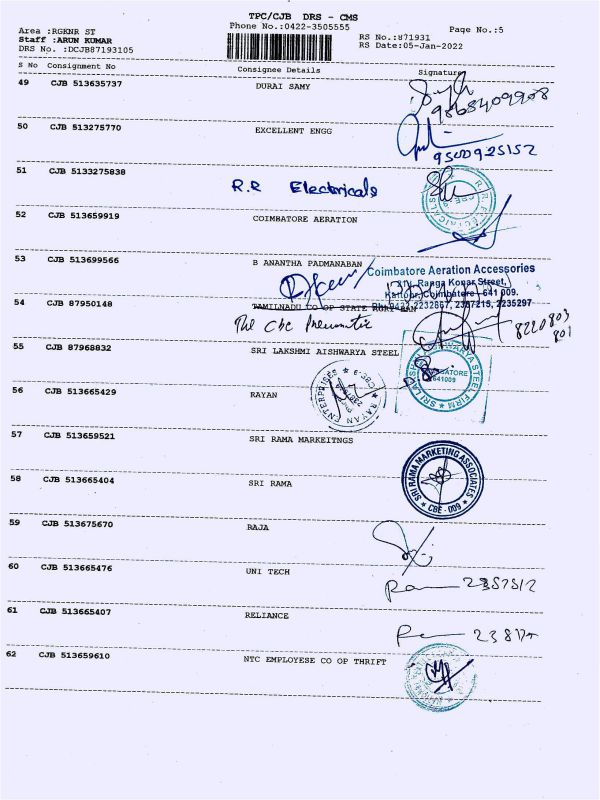 TPC/CJB DRS - CMS
Phone No.:0422-3505555
Page No.:5
Area :RGKNR ST
Staff :ARUN KUMAR
DRS No. :DCJB87193105
RS No.:871931
RS Date:05-Jan-2022
S No Consignment No Consignee Details Signature
49 CJB 513635737 DURAI SAMY
50 CJB 513275770 EXCELLENT ENGG
9500925152
51 CJB 5133275838
R.R Electricals
52 CJB 513659919 COIMBATORE AERATION
53 CJB 513699566 B ANANTHA PADMANABAN
Coimbatore Aeration Accessories
Ranga Konar Street,
Kattoor, Coimbatore - 641 009.
54 CJB 87950148 TAMILNADU CO OP STATE
The Cbe Pneumatic
55 CJB 87968832 SRI LAKSHMI AISHWARYA STEEL
SRI LAKSHMI AISHWARYA STEEL FIRM
COIMBATORE
641009
56 CJB 513665429 RAYAN
RAYAN ENTERPRISES
CBE-9
57 CJB 513659521 SRI RAMA MARKEITNGS
SRI RAMA MARKETING ASSOCIATES
CBE - 009
58 CJB 513665404 SRI RAMA
59 CJB 513675670 RAJA
60 CJB 513665476 UNI TECH
61 CJB 513665407 RELIANCE
62 CJB 513659610 NTC EMPLOYESE CO OP THRIFT